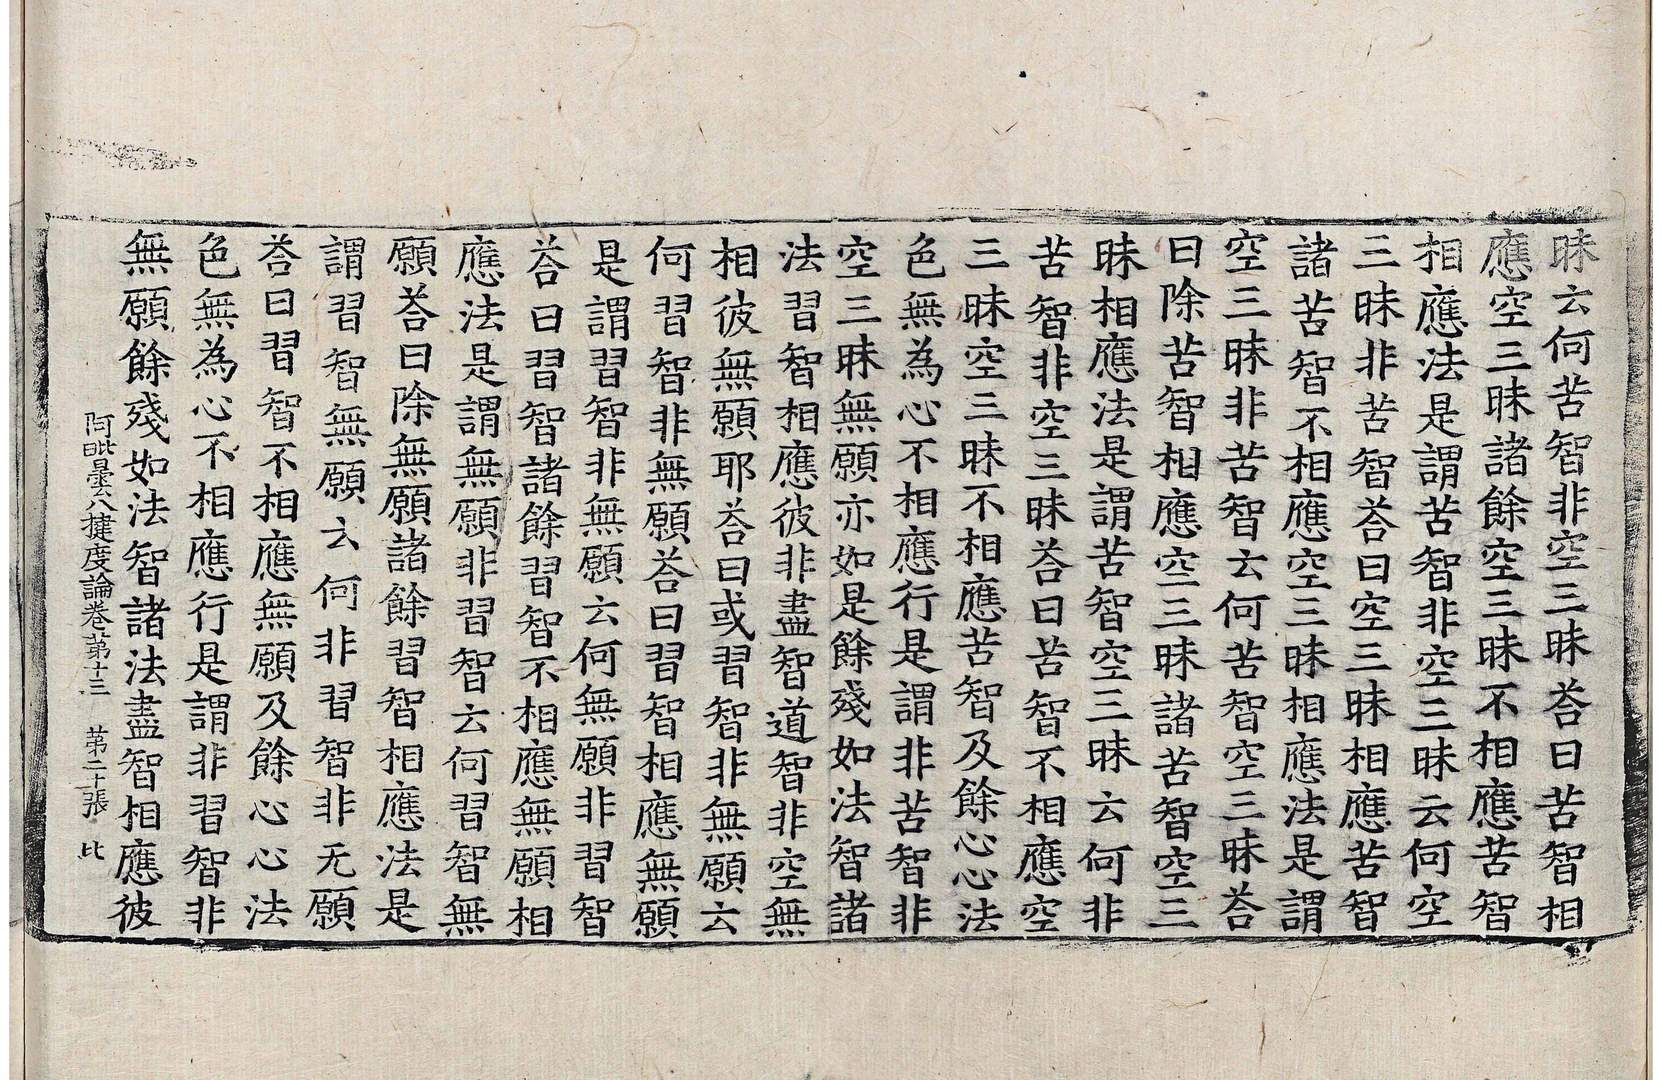 昧云何苦智非空三昧荅曰苦智相
應空三昧諸餘空三昧不相應苦智
相應法是謂苦智非空三昧云何空
三昧非苦智荅曰空三昧相應苦智
諸苦智不相應空三昧相應法是謂
空三昧非苦智云何苦智空三昧荅
曰除苦智相應空三昧諸苦智空三
昧相應法是謂苦智空三昧云何非
苦智非空三昧荅曰苦智不相應空
三昧空三昧不相應苦智及餘心心法
色無為心不相應行是謂非苦智非
空三昧無願亦如是餘殘如法智諸
法習智相應彼非盡智道智非空無
相彼無願耶荅曰或習智非無願云
何習智非無願荅曰習智相應無願
是謂習智非無願云何無願非習智
荅曰習智諸餘習智不相應無願相
應法是謂無願非習智云何習智無
願荅曰除無願諸餘習智相應法是
謂習智無願云何非習智非无願
荅曰習智不相應無願及餘心心法
色無為心不相應行是謂非習智非
無願餘殘如法智諸法盡智相應彼
阿毗曇八揵度論卷苐十三 苐二十張 比